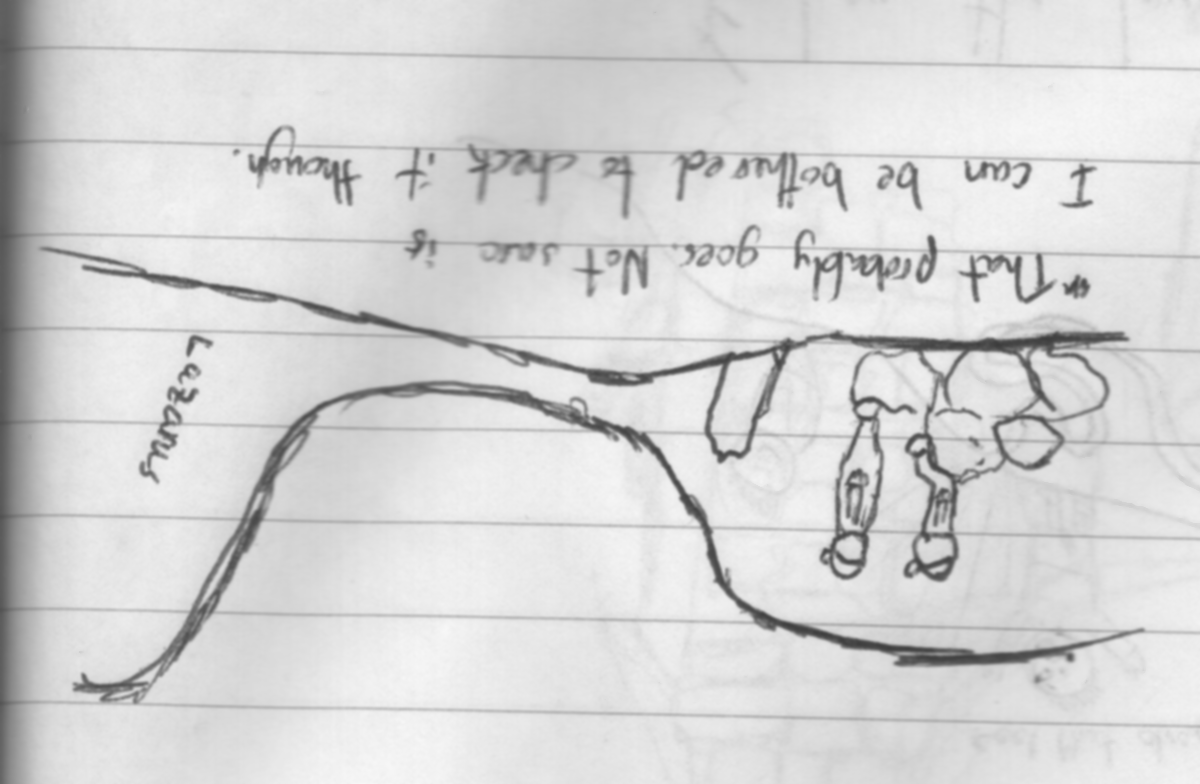 *That probably goes. Not sure is
I can be bothered to check it though.
Lazarus